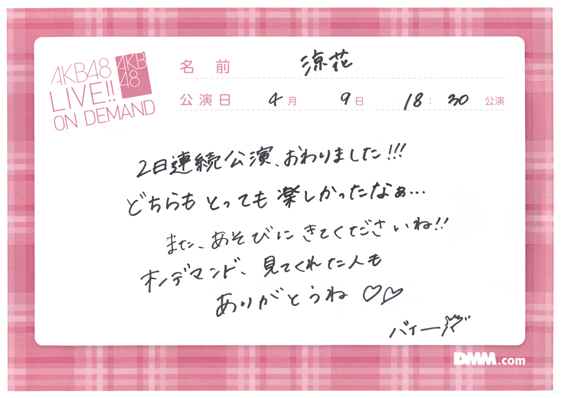 AKB48
LIVE!!
ON DEMAND
AKB
48
名前 涼花
公演日 4月 9日 18:30 公演
2日連続公演、おわりました!!!
どちらも とっても 楽しかったなぁ…
また、あそびに きてくださいね!!
オンデマンド、見てくれた人も
ありがとうね♡♡
バイー
DMM.com